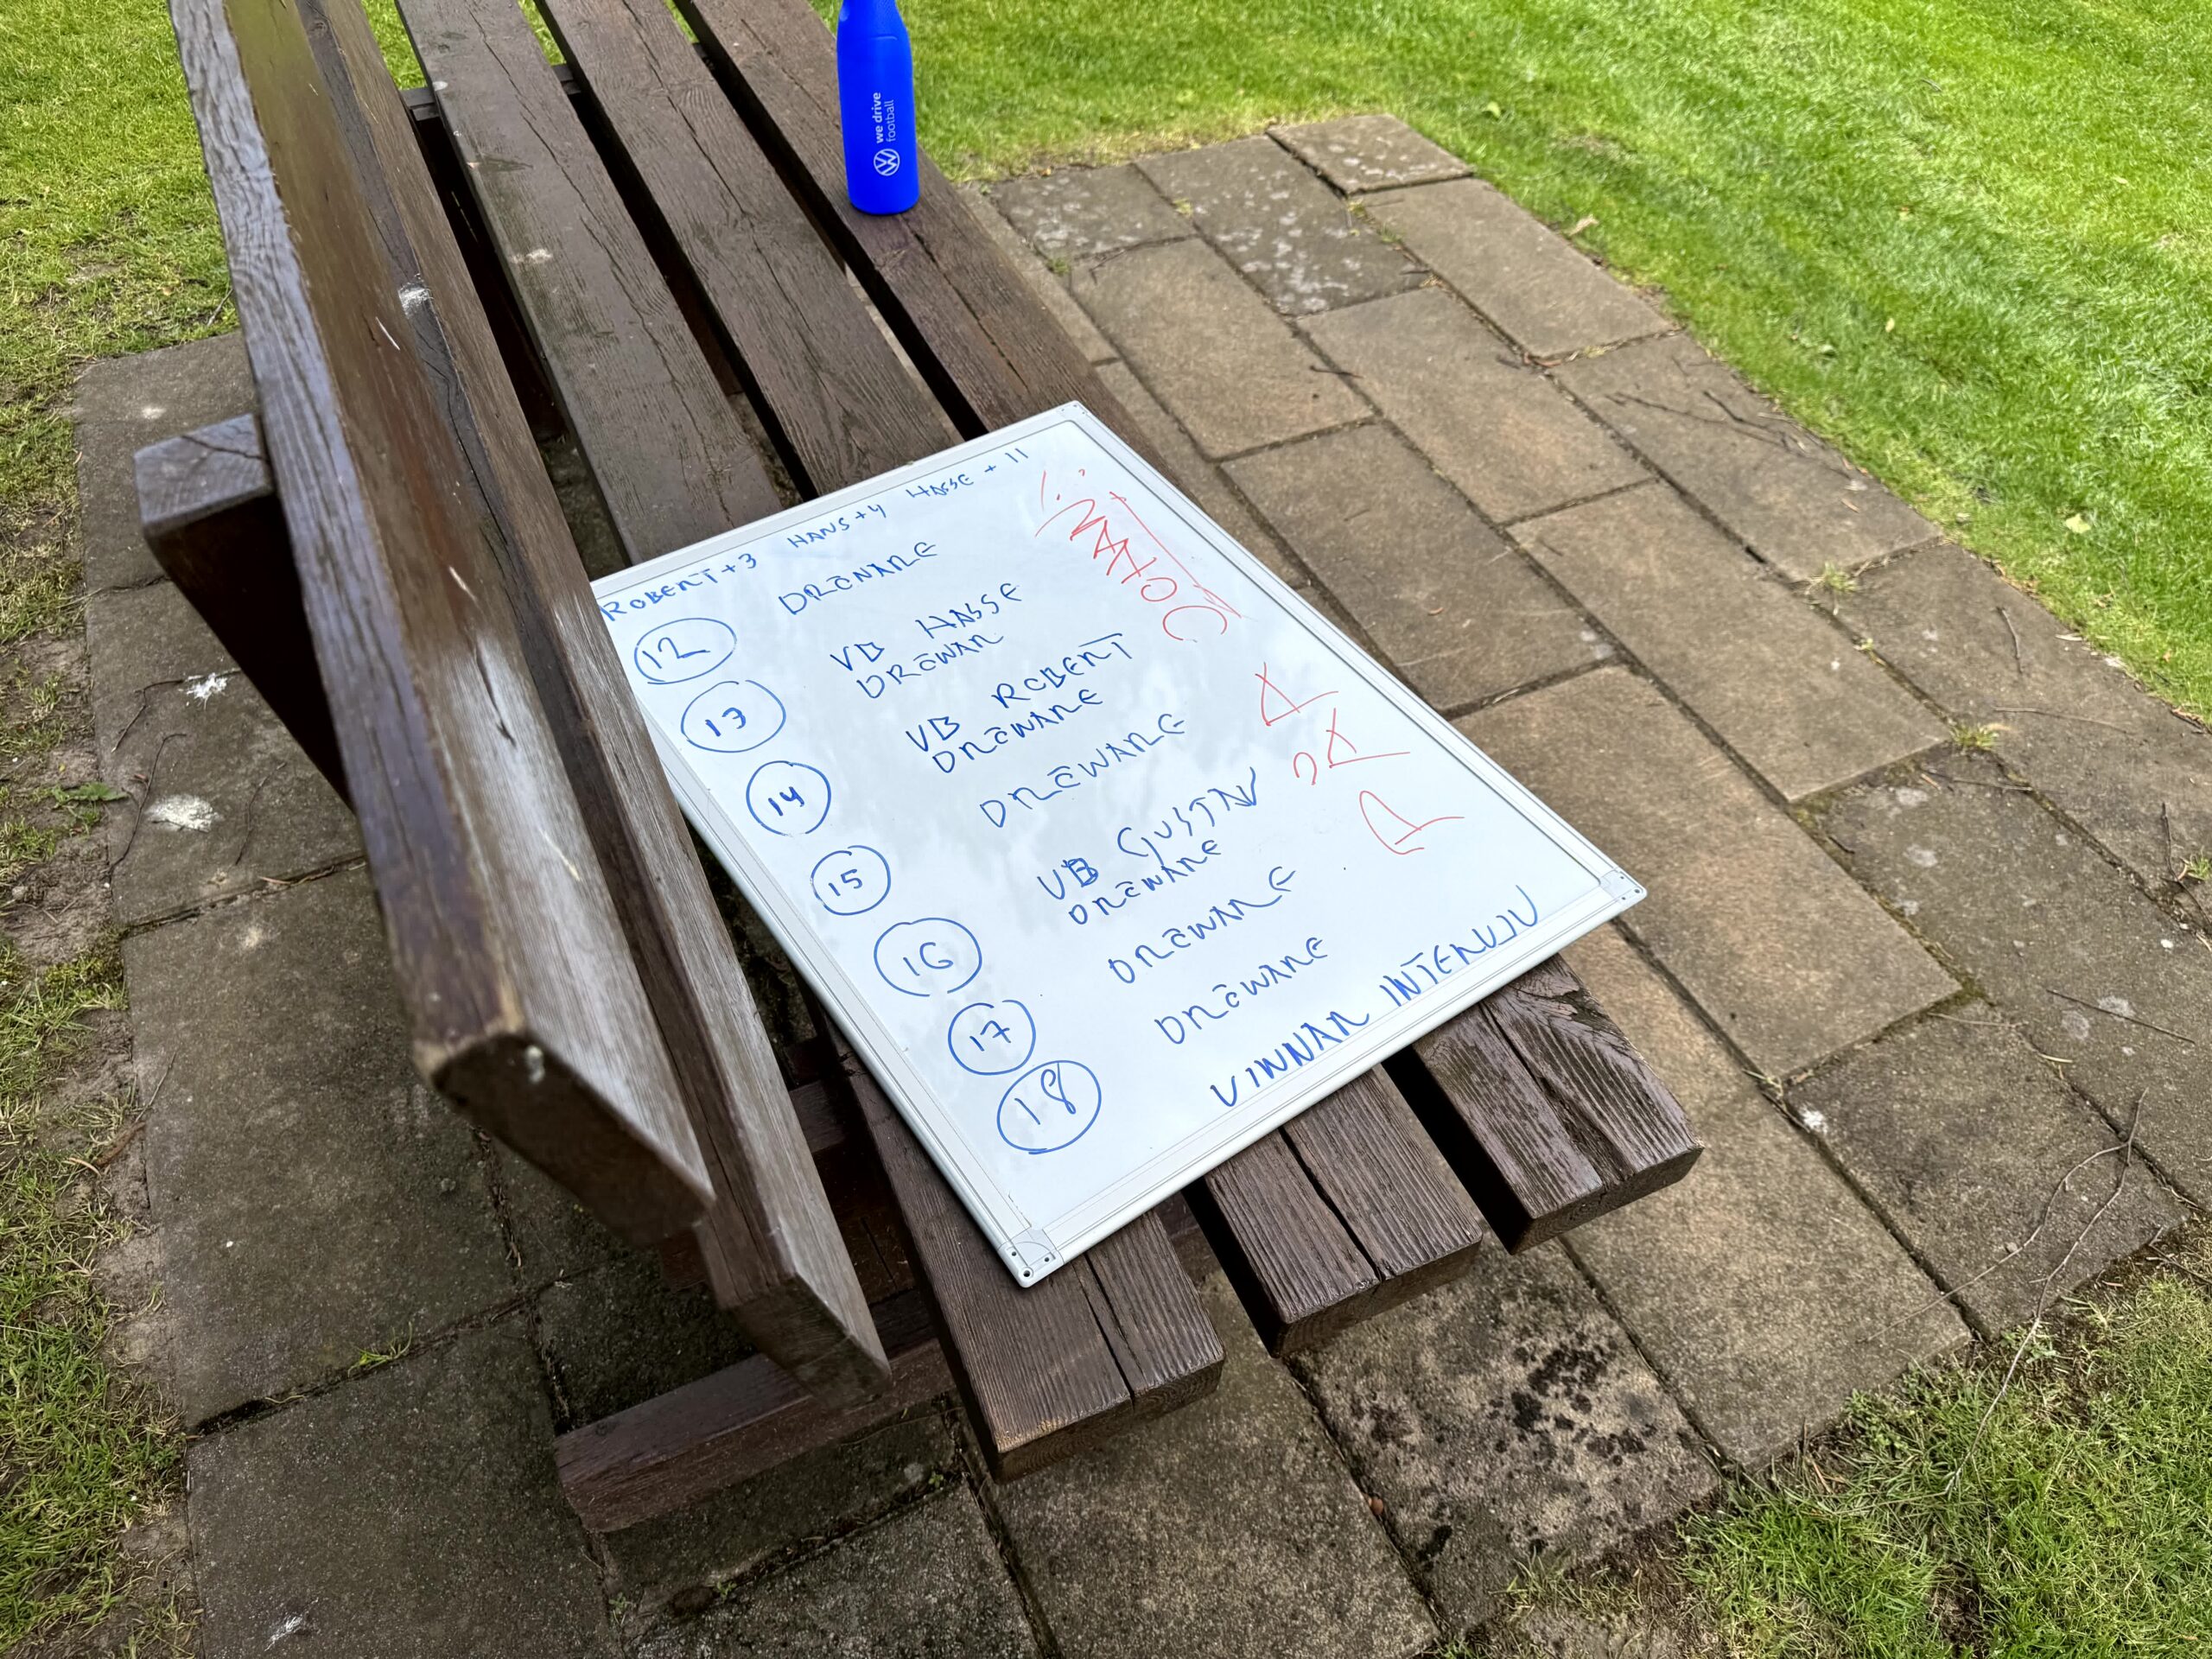 we drive
football
ROBERT+3 HANS+4 HASSE + 11
12 DRĒWARE
13 VB HASSE
DRĒWAR
14 VB ROBERT
DRĒWARE
15 DRĒWARE
16 VB GUSTAV
DRĒWARE
17 DRĒWARE
18 DRĒWARE
VINNAR INTERVJU